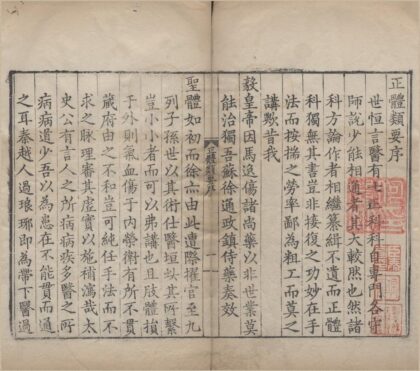 正體類要序
世恒言醫有十三科科自專門各守
師說少能相通者其大較然也然諸
科方論作者相繼纂緝不遺而正體
科獨無其書豈非接復之功妙在手
法而按揣之勞率鄙為粗工而莫之
講歟昔我
毅皇帝因馬逸傷諸尚藥以非世業莫
能治獨吾蘇徐通政鎮侍藥奏效
正體類要序 一
聖體如初而徐亦由此遭際擢官至九
列子孫世以其術仕醫垣此其所繫
豈小小者而可以弗講也且肢體損
于外則氣血傷于內營衛有所不貫
藏府由之不和豈可純任手法而不
求之脉理審其虛實以施補瀉哉太
史公有言人之所病病疾多醫之所
病病道少吾以為患在不能貫而通
之耳秦越人過琅琊即為帶下醫過